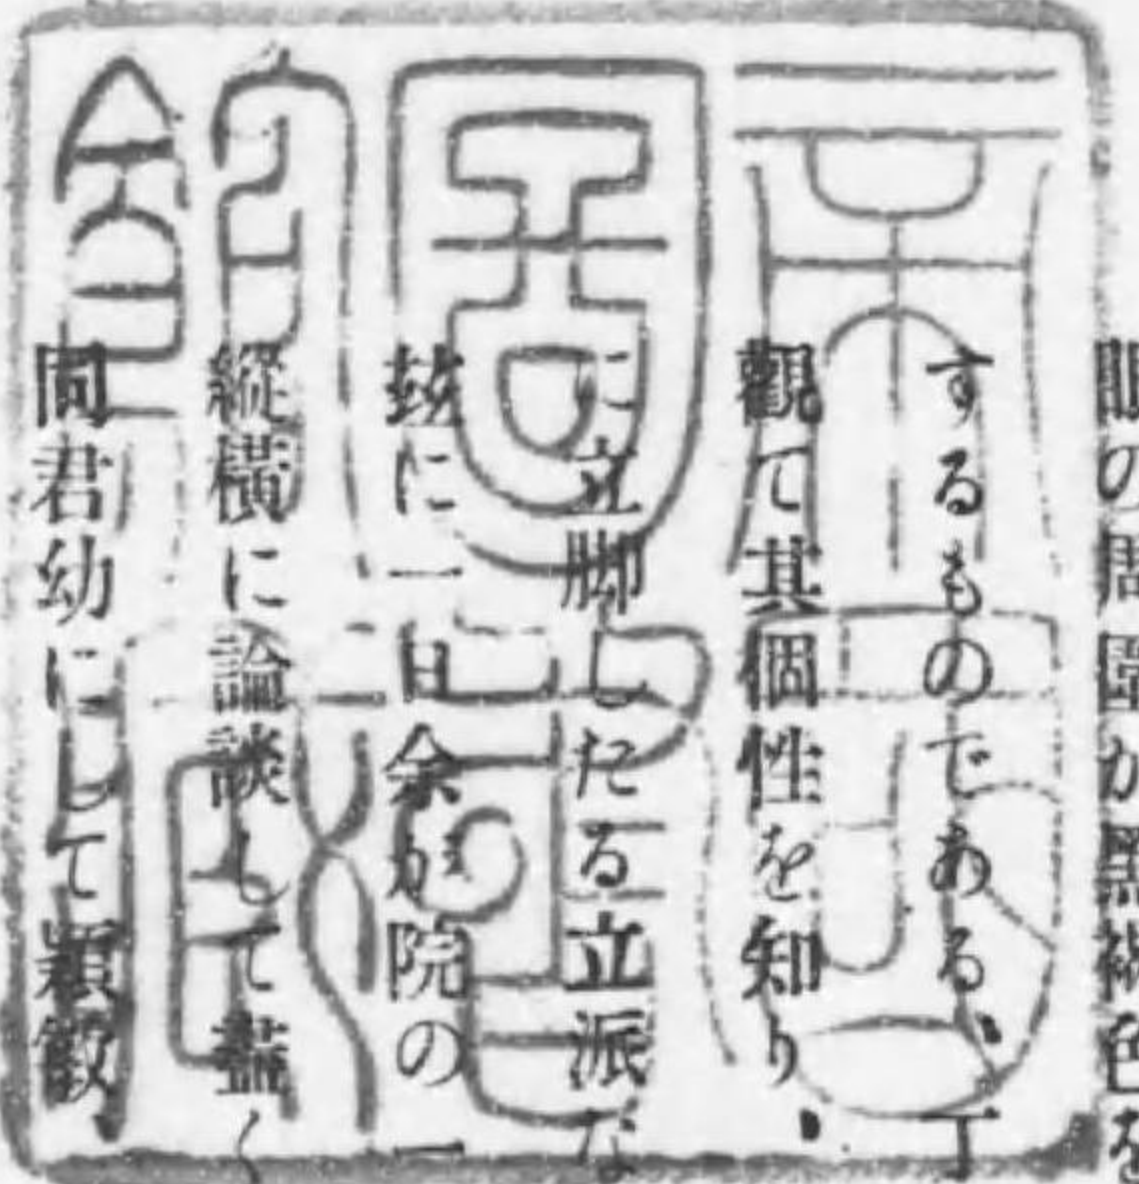 眼の周圍が黑褐色を
するものである、丁
觀て其個性を知り、
に立脚したる立派な
玆に一日余が院の一
縱橫に論談して盡く
問君幼にして穎敏、
帝國圖書館藏